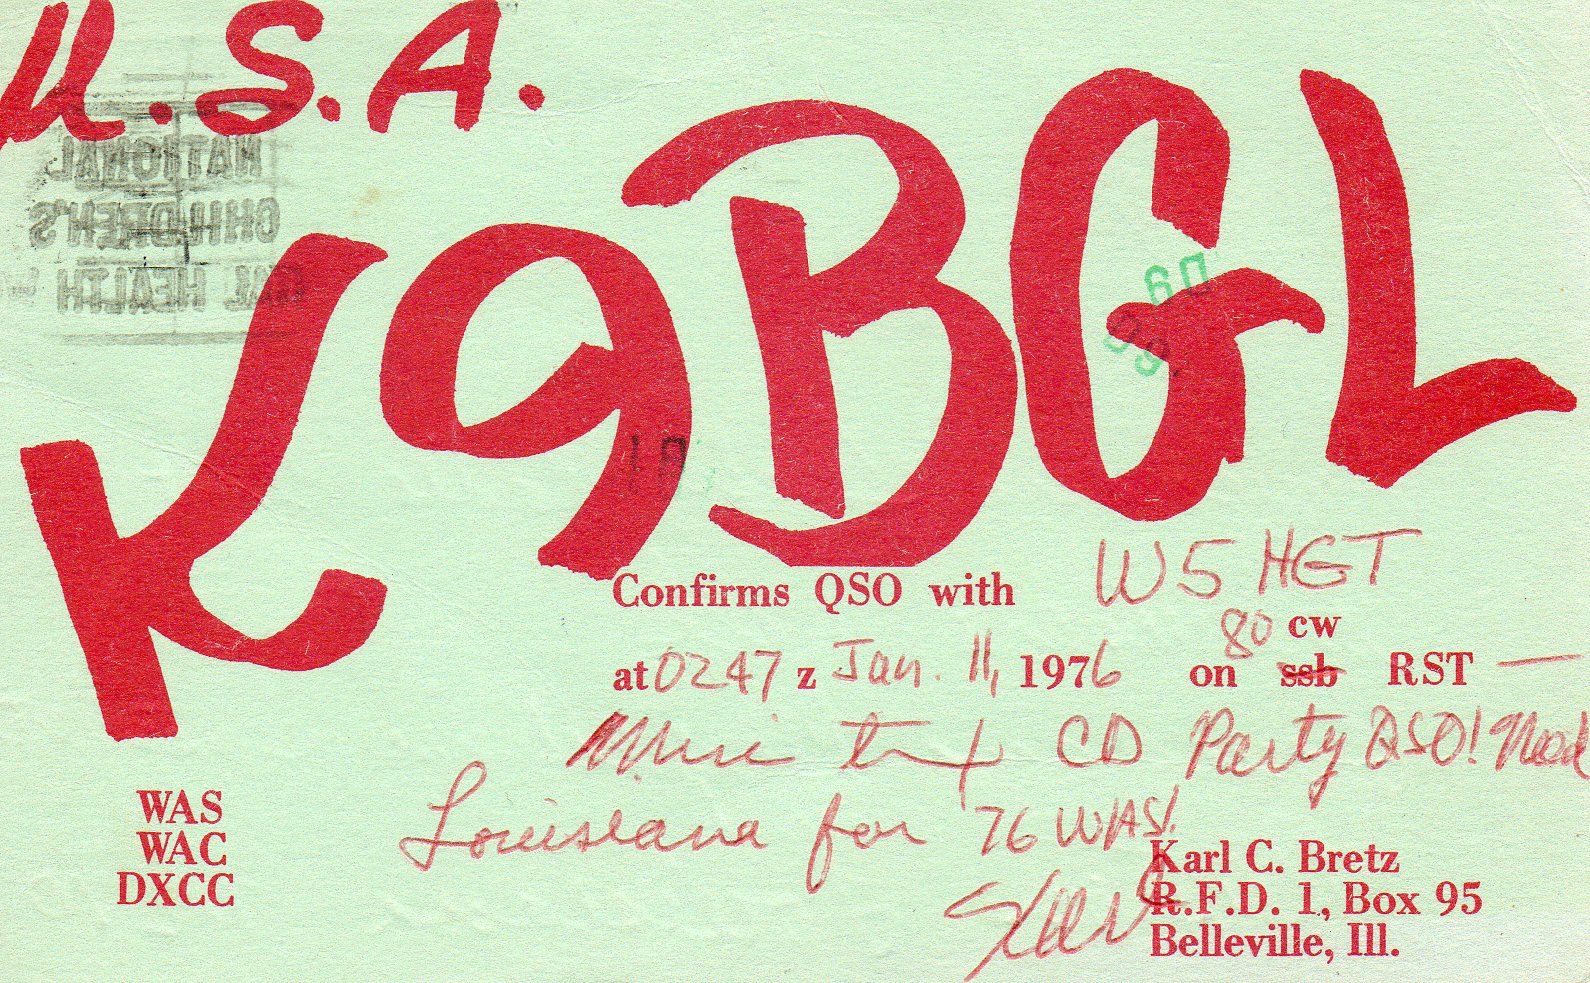 U.S.A.
K9BGL
NATIONAL
CHILDREN'S
HEALTH
D9
Confirms QSO with W5HGT
at 0247 z Jan. 11, 1976 on 80 cw ssb RST —
CD Party QSO! Need
Louisiana for 76 WAS!
Karl
WAS
WAC
DXCC
Karl C. Bretz
R.F.D. 1, Box 95
Belleville, Ill.